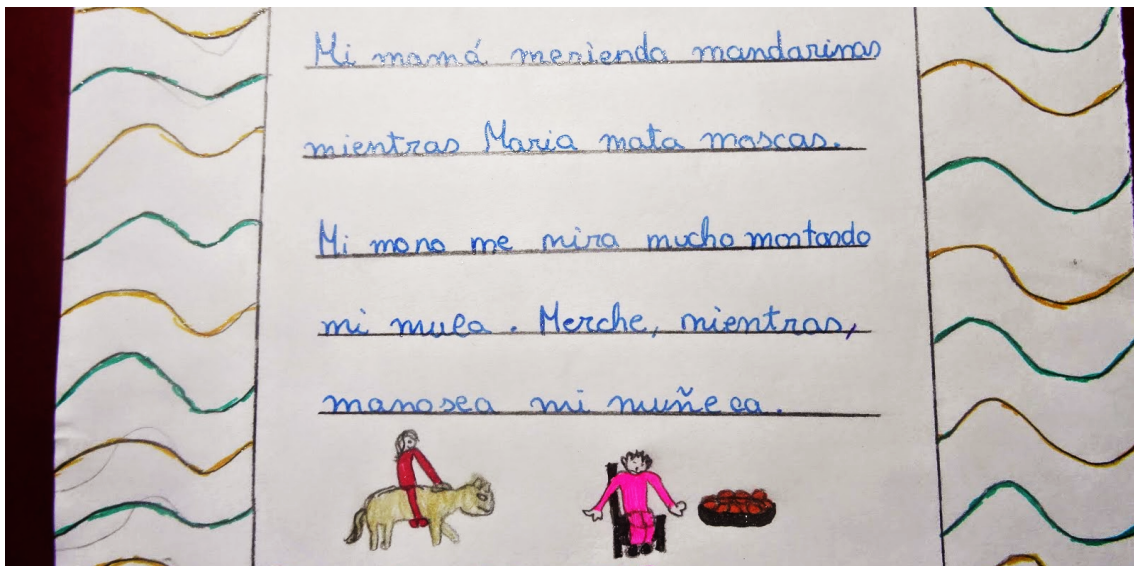 Mi mamá merienda mandarinas
mientras Maria mata moscas.
Mi mono me mira mucho montando
mi mula. Merche, mientras,
manosea mi muñeca.